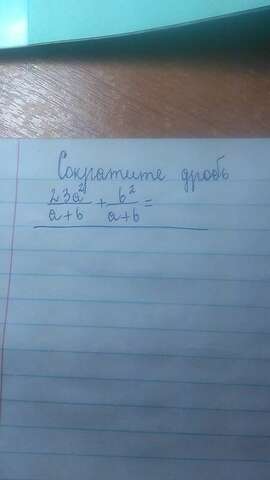 Сократите дробь
23a²/a+b + b²/a+b =